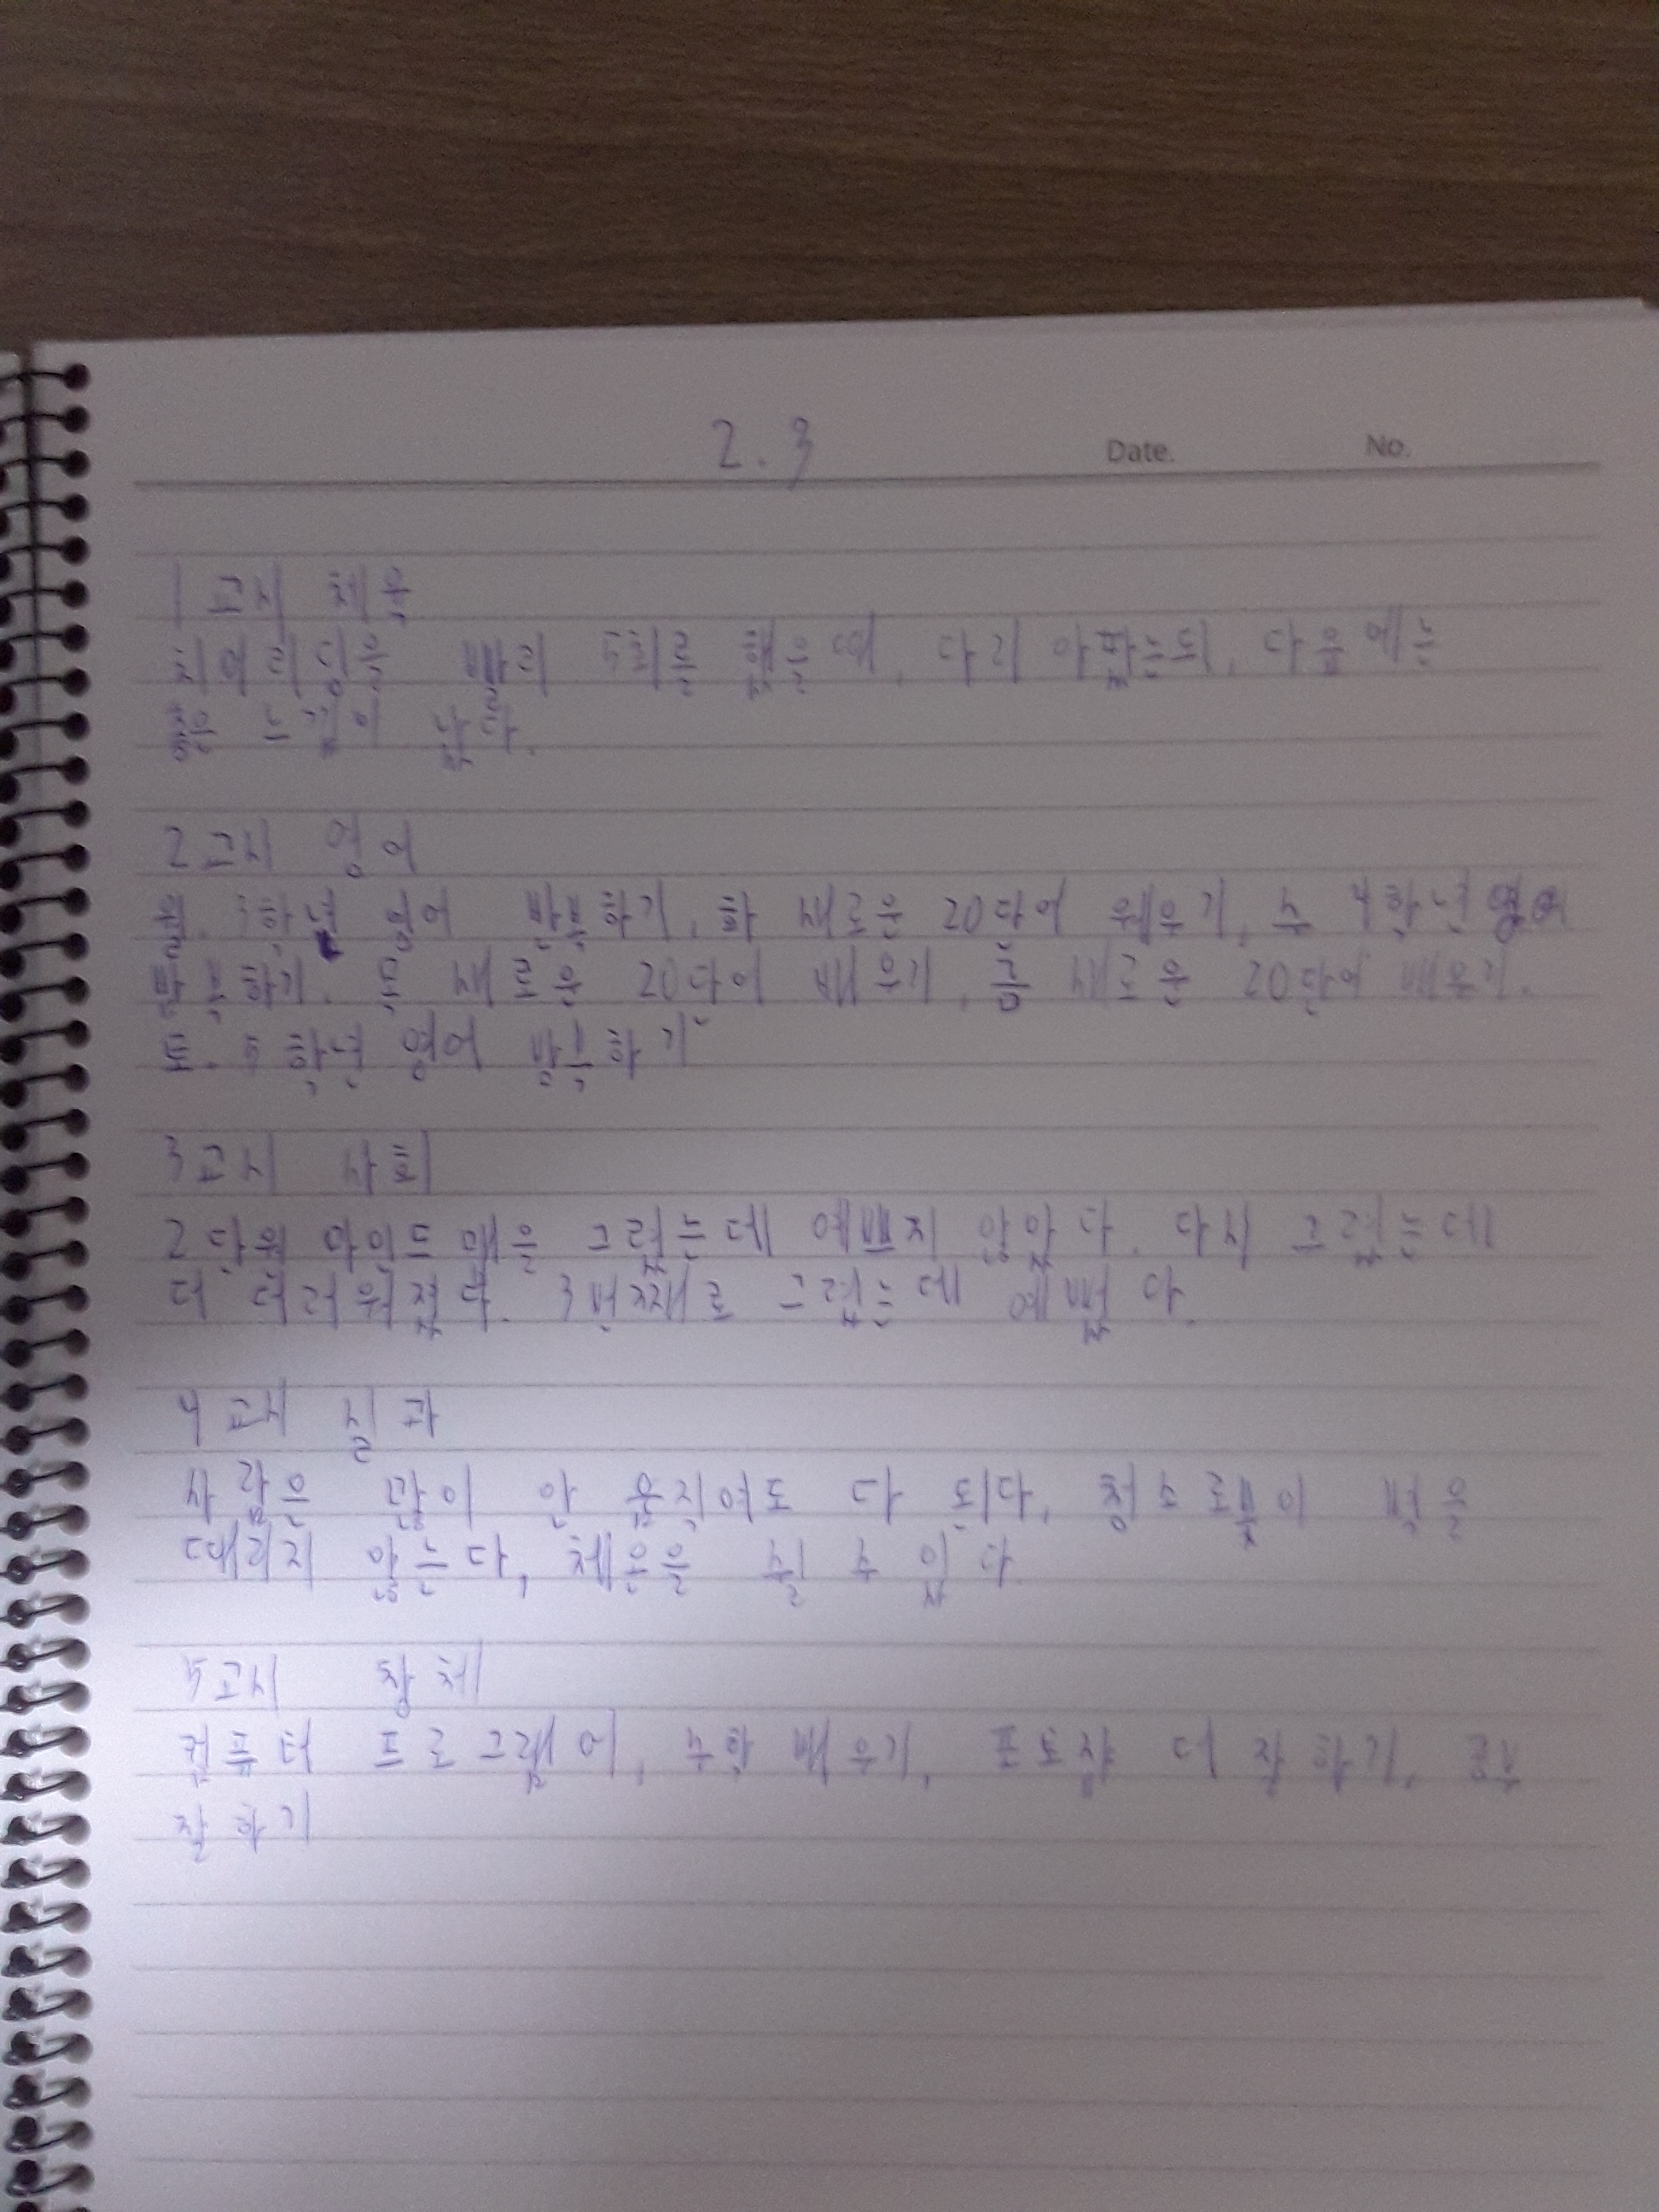 2.3
Date. No.
1교시 체육
치어리딩을 빨리 5회를 했을때, 다리 아팠는되, 다음에는
좋은 느낌이 났다.
2교시 영어
월. 3학년 영어 반복하기, 화 새로운 20단어 웨우기, 수 4학년 영어
반복하기. 목 새로운 20단어 배우기, 금 새로운 20단어 배우기.
토. 5학년 영어 반복하기
3교시 사회
2단원 마인드맵을 그렸는데 예쁘지 않았다. 다시 그렸는데
더 더러워졌다. 3번째로 그렸는데 예뻤다.
4교시 실과
사람은 많이 안 움직여도 다 된다, 청소로봇이 벽을
때리지 않는다, 체온을 쉴 수 있다
5교시 창체
컴퓨터 프로그램어, 수학 배우기, 포토샵 더 잘하기,
잘하기